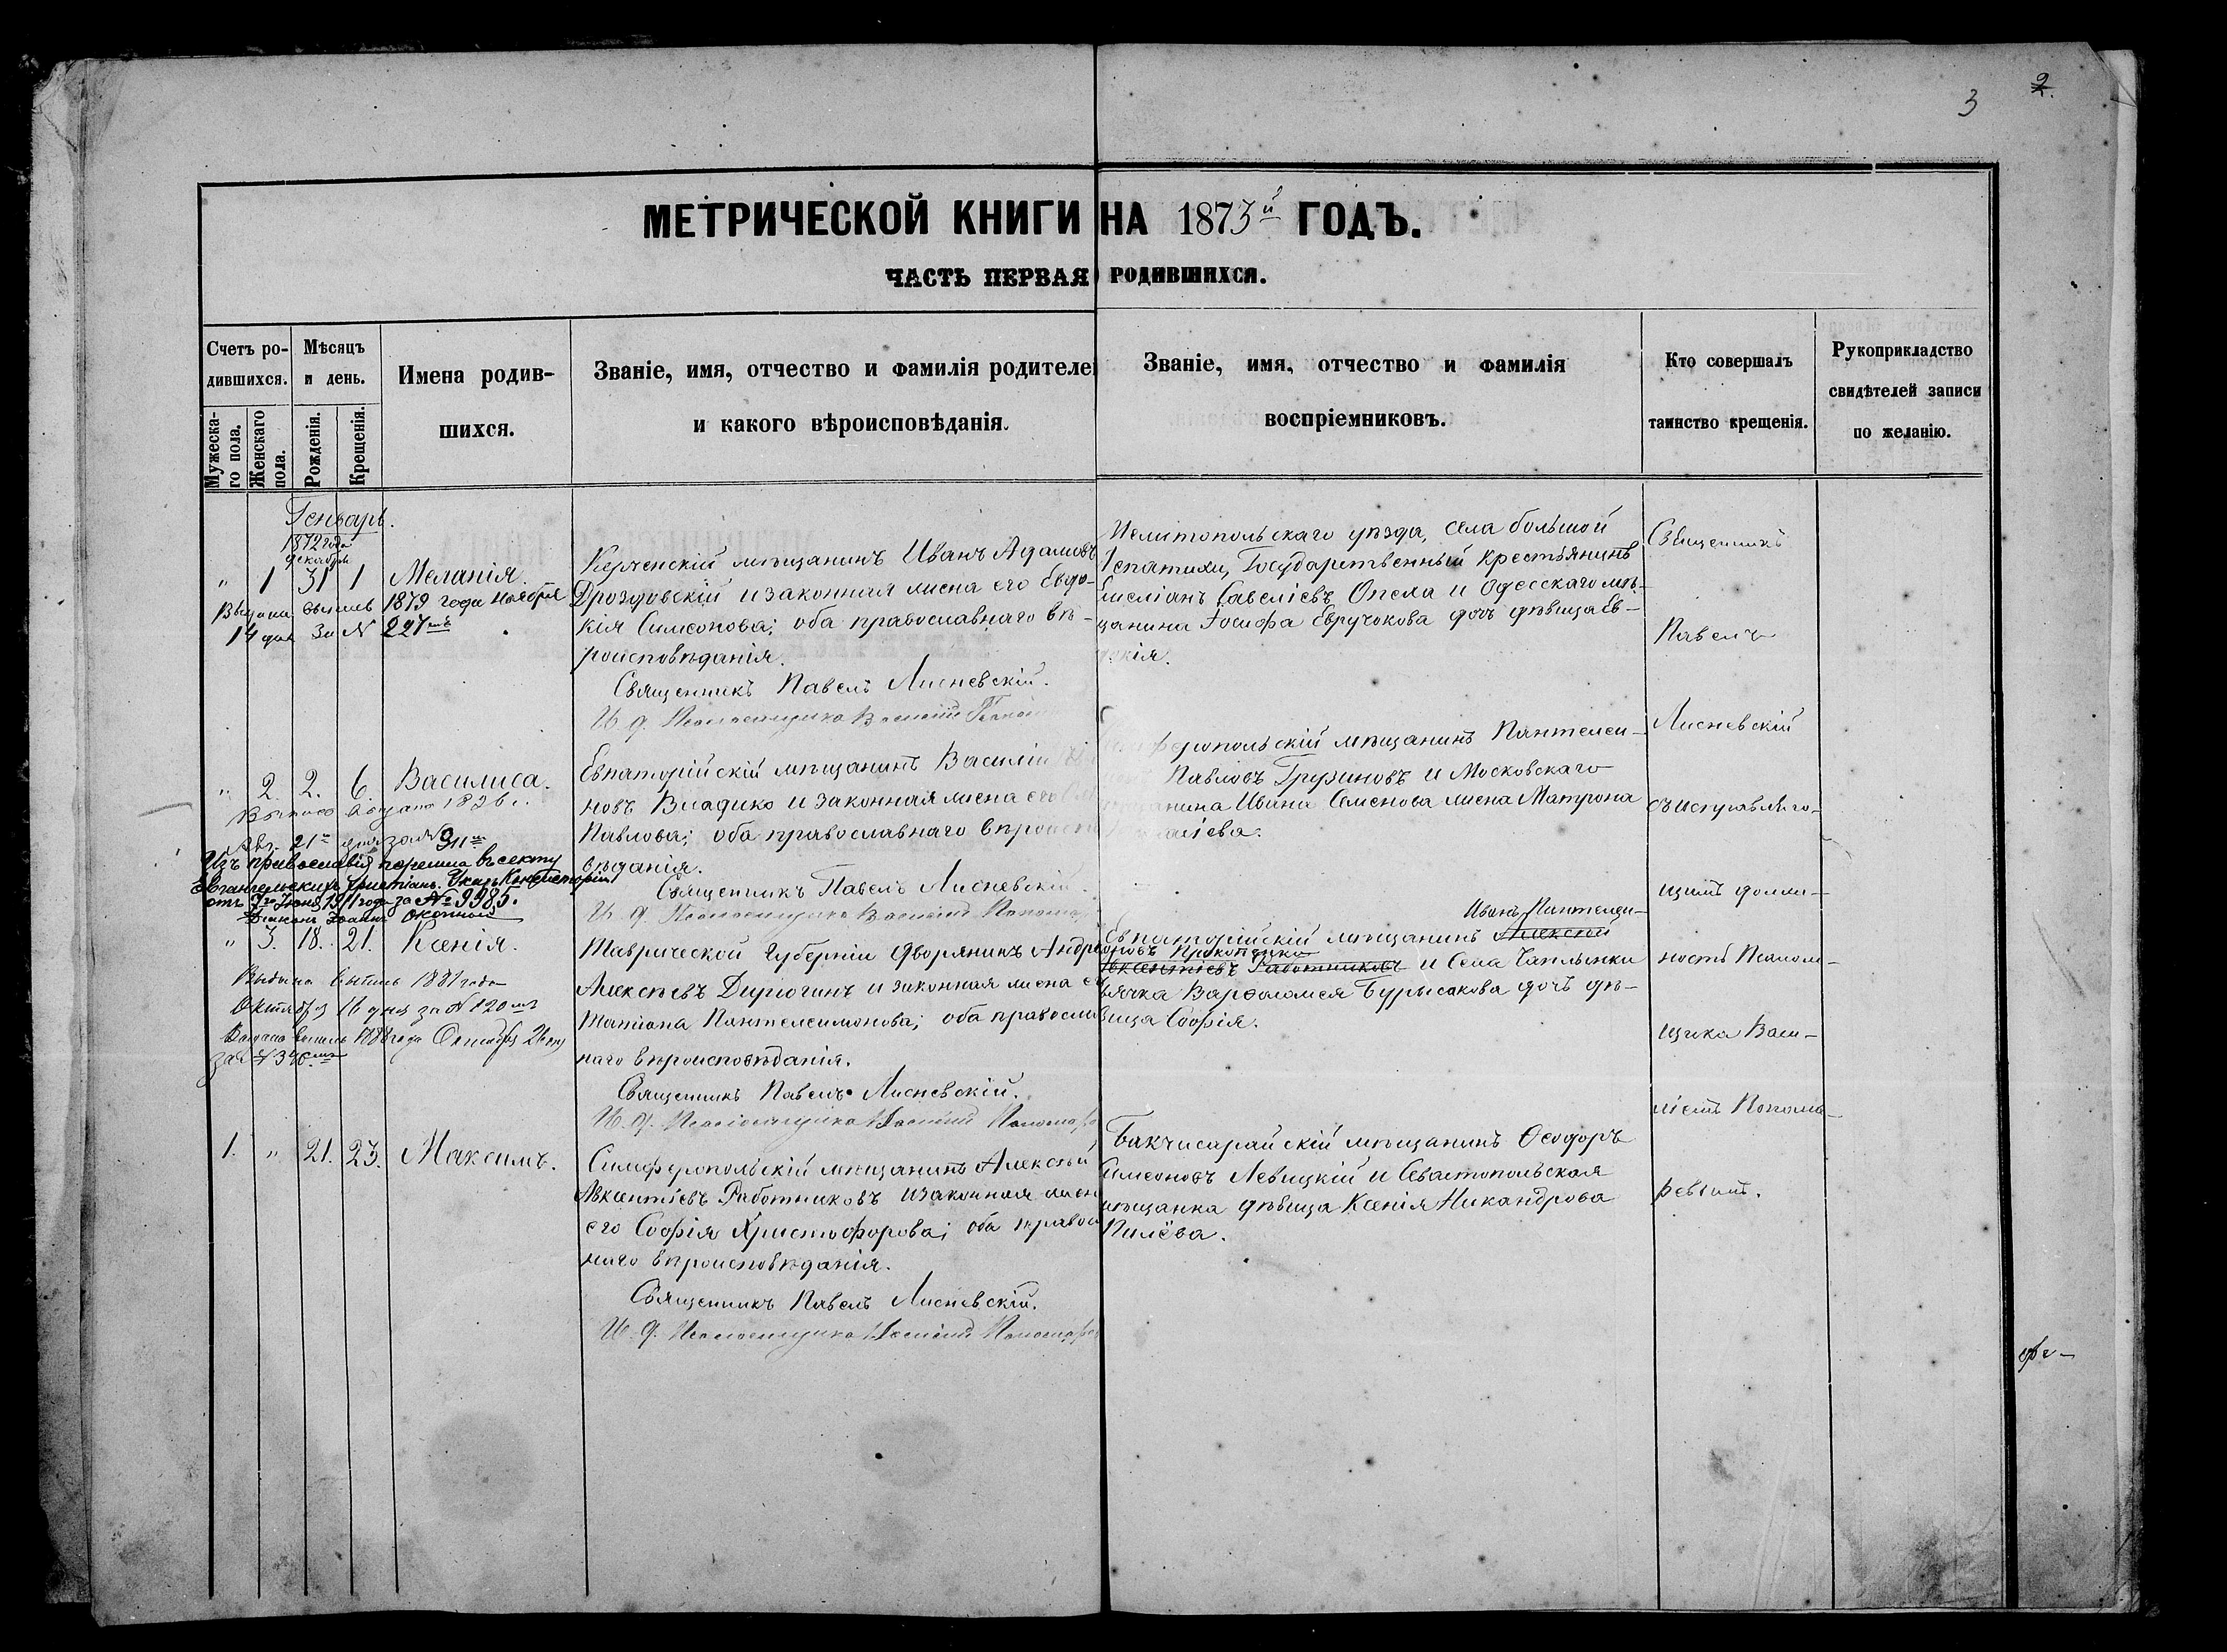 3
2.
МЕТРИЧЕСКОЙ КНИГИ НА 1873й ГОДЪ.
ЧАСТЬ ПЕРВАЯ РОДИВШИХСЯ.
Счетъ ро-
дившихся.
Мужеска-
го пола.
Женскаго
пола.
Мѣсяцъ
и день.
Рожденія.
Крещенія.
Имена родив-
шихся.
Званіе, имя, отчество и фамилія родителе
и какого вѣроисповѣданія.
Званіе, имя, отчество и фамилія
воспріемниковъ.
Кто совершалъ
таинство крещенія.
Рукоприкладство
свидѣтелей записи
по желанію.
Генварь.
1872 года
Декабрь
" 1 31 1 Меланія.
Выдана выпись 1879 года Ноября
14 дня за N 227
Керченскій мѣщанинъ Иванъ Адамовъ
Дроздовскій и законная жена его Евдо-
кія Симеонова; оба православнаго вѣ-
роисповѣданія.
Священникъ Павелъ Лисневскій.
И. д. Псаломщика Василій
Мелитопольскаго уѣзда, села большой
Лепатихи, Государственный крестьянинъ
Савеліевъ Опела и Одесскаго мѣ-
щанина Іосифа дочь дѣвица Ев-
докія.
" 2. 2. 6. Василиса.
Авг. 21 дня за N 911
Изъ православія перешла въ секту
Евангельскихъ Христіанъ. Указъ Консисторіи
отъ 7го Іюня 1911 года за № 9985.
Діаконъ Іоаннъ Околной
Евпаторійскій мѣщанинъ Василій
новъ Владико и законная жена его
Павлова; оба православнаго вѣроиспо
вѣданія.
Священникъ Павелъ Лисневскій.
И. д. Псаломщика Василій Понома
феропольскій мѣщанинъ Пантелеи-
Павловъ Грузиновъ и Московскаго
щанина Ивана Семенова жена Матрона
" 3. 18. 21. Ксенія.
Выдана выпись 1881 года
Октября 16 дня за N 120
Выдана выпись 1888 года Октября 26 дня
Таврической Губерніи Дворянинъ Андр
Алексѣевъ Дирюгинъ и законная жена е
Татіана Пантелеимонова; оба правосла
наго вѣроисповѣданія.
Священникъ Павелъ Лисневскій.
И. д. Псаломщика Василій Пономар
Иванъ Пантелеи-
Евпаторійскій мѣщанинъ Алексѣй
Прокопенко
Авксентіевъ Работниковъ и Села Чаплынки
Варфоломея Бурысакова дочь дѣ-
вица Софія.
1. " 21. 23. Максимъ.
Симферопольскій мѣщанинъ Алексѣй
Авксентіевъ Работниковъ и законная жен
его Софія Христофорова; оба правос
наго вѣроисповѣданія.
Священникъ Павелъ Лисневскій.
И. д. Псаломщика Василій Пономар
Бакчисарайскій мѣщанинъ Ѳеодоръ
Симеоновъ Левицкій и Севастопольская
мѣщанка дѣвица Ксенія Никандрова
Пилёва.
Священникъ
Павелъ
Лисневскій
съ исправляю-
щимъ долж-
ность Псалом-
щика Васи-
ліемъ Понома-
ревымъ.